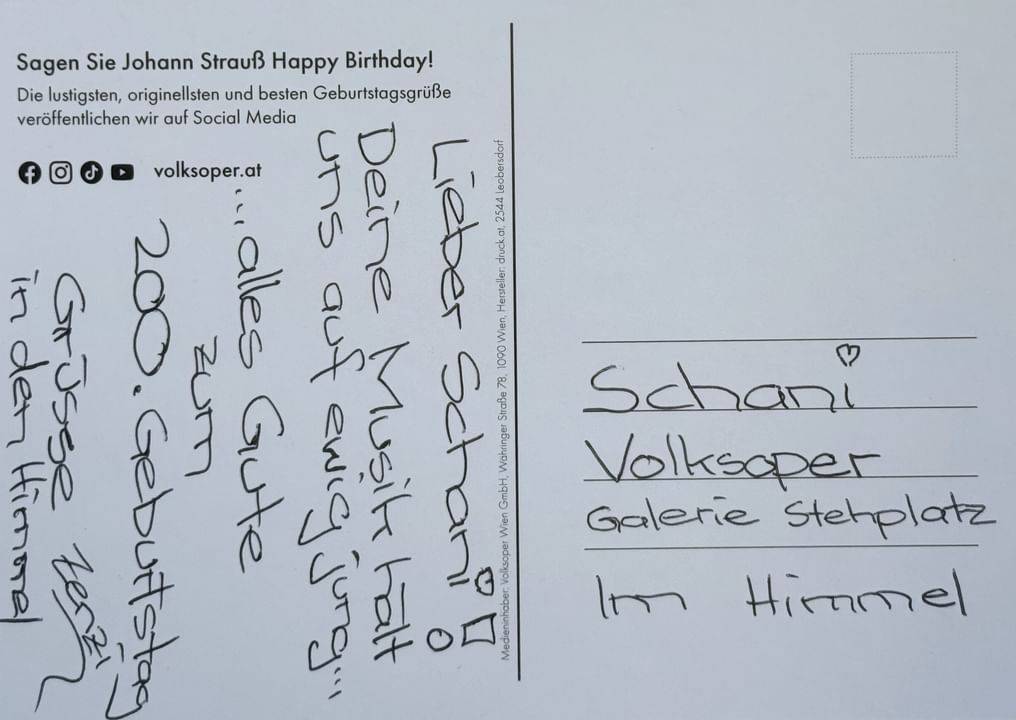 Sagen Sie Johann Strauß Happy Birthday!
Die lustigsten, originellsten und besten Geburtstagsgrüße
veröffentlichen wir auf Social Media
volksoper.at
Lieber Schani!
Deine Musik hält
uns auf ewig jung...
...alles Gute
zum
200. Geburtstag
Grüsse
in den Himmel
Medieninhaber: Volksoper Wien GmbH, Währinger Straße 78, 1090 Wien, Hersteller: druck.at, 2544 Leobersdorf
Schani
Volksoper
Galerie Stehplatz
Im Himmel